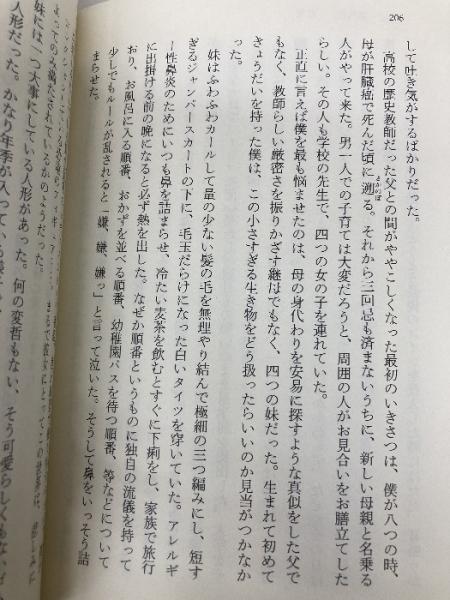 206
して吐き気がするばかりだった。
高校の歴史教師だった父との間がややこしくなった最初のいきさつは、僕が八つの時、
母が肝臓癌で死んだ頃に遡る。それから三回忌も済まないうちに、新しい母親と名乗る
さかのぼ
人がやって来た。男一人での子育ては大変だろうと、周囲の人がお見合いをお膳立てした
らしい。その人も学校の先生で、四つの女の子を連れていた。
正直に言えば僕を最も悩ませたのは、母の身代わりを安易に探すような真似をした父で
もなく、教師らしい厳密さを振りかざす継母でもなく、四つの妹だった。生まれて初めて
きょうだいを持った僕は、この小さすぎる生き物をどう扱ったらいいのか見当がつかなか
った。
妹はふわふわカールして量の少ない髪の毛を無理やり結んで極細の三つ編みにし、短す
ぎるジャンパースカートの下に、毛玉だらけになった白いタイツを穿いていた。アレルギ
ー性鼻炎のためにいつも鼻を詰まらせ、冷たい麦茶を飲むとすぐに下痢をし、家族で旅行
に出掛ける前の晩になると必ず熱を出した。なぜか順番というものに独自の流儀を持って
おり、お風呂に入る順番、おかずを並べる順番、幼稚園バスを待つ順番、等などについて
少しでもルールが乱されると「嫌、嫌、嫌っ」と言って泣いた。そうして鼻をいっそう詰
まらせた。
妹には一つ大事にしている人形があった。何の変哲もない、そう可愛らしくもない
人形だった。かなり年季が入って、
よってのみ満たされているかのようだった。